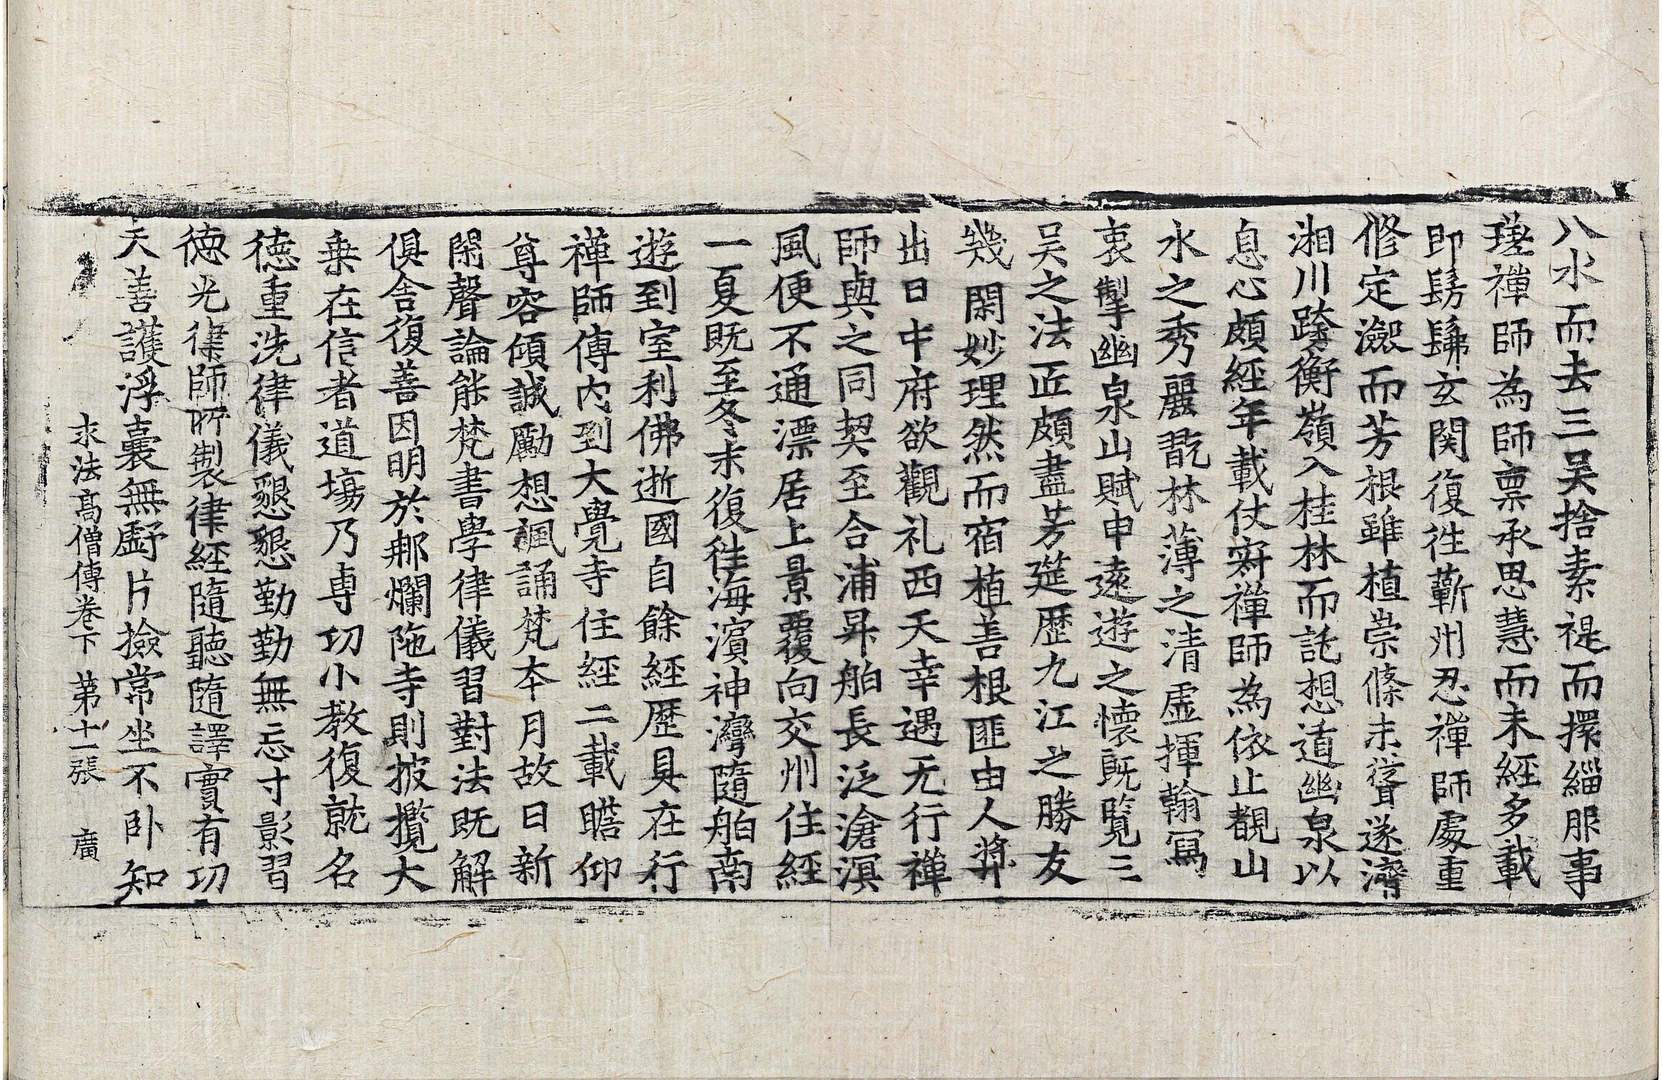 八水而去三吳捨素禔而擐緇服事
瓚禪師為師稟承思慧而未經多載
即髣髴玄関復徃蘄州忍禪師處重
修定瀲而芳根雖植崇條未聳遂濟
湘川跨衡嶺入桂林而託想逍幽泉以
息心頗經年載仗寂禪師為依止覩山
水之秀麗翫林薄之清虛揮翰寫
衷掣幽泉山賦申遠遊之懷既覽三
吳之法匠頗盡芳筵歷九江之勝友
幾閑妙理然而宿植善根匪由人奬
出日中府欲觀礼西天幸遇无行禪
師與之同契至合浦昇舶長泛滄溟
風便不通漂居上景覆向交州住經
一夏既至冬末復徃海濵神灣隨舶南
遊到室利佛逝國自餘經歷具在行
禪師傳內到大覺寺住經二載瞻仰
尊容傾誠勵想諷誦梵本月故日新
閑聲論能梵書學律儀習對法既解
俱舍復善因明於那爛陁寺則披攬大
乗在信者道場乃専功小教復就名
德重洗律儀懇懇勤勤無忘寸影習
德光律師所製律經隨聽隨譯實有功
夫善護浮囊無虧片撿常坐不卧知
求法髙僧傳卷下　第十一張　廣